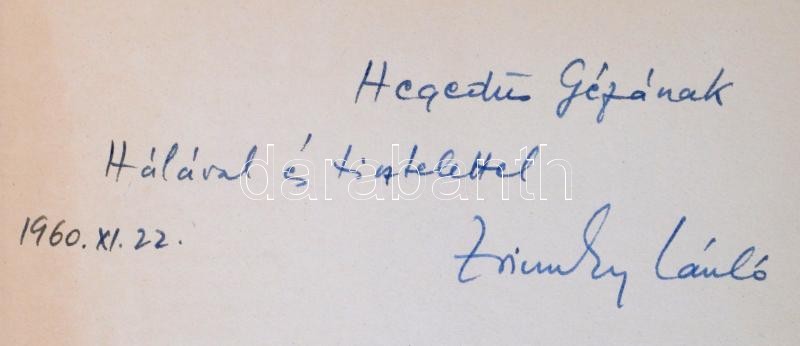 Hegedüs Gézának
Hálával és tisztelettel
darabanth
1960. XI. 22.
Zrinszky László